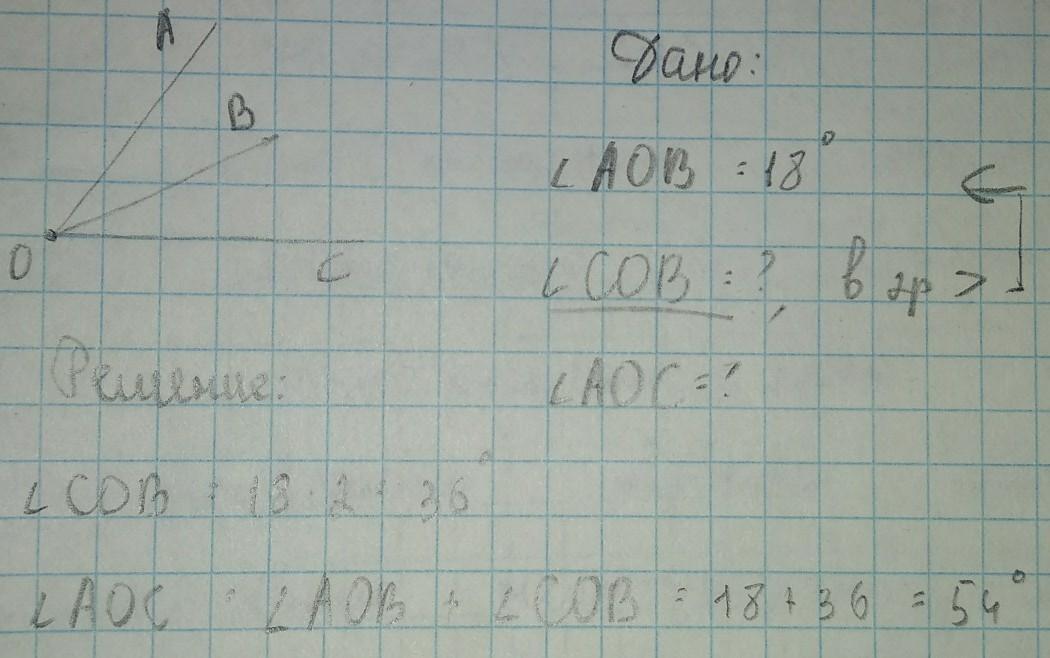 A
B
O
C
Дано:
∠AOB = 18°
∠COB = ?, в 2р >
∠AOC = ?
Решение:
∠COB = 18 · 2 = 36°
∠AOC = ∠AOB + ∠COB = 18 + 36 = 54°